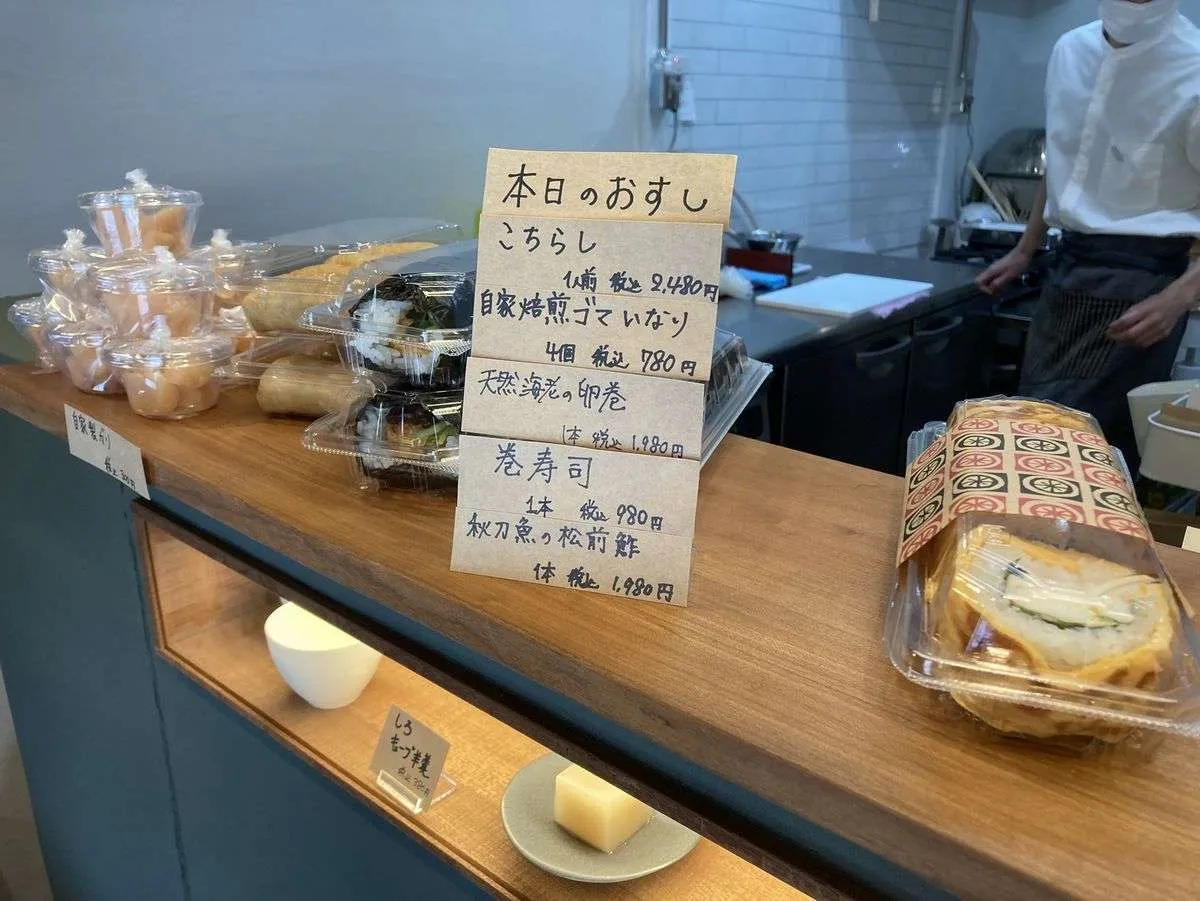 本日のおすし
こちらし
1人前 税込 2,480円
自家焙煎ゴマいなり
4個 税込 780円
天然海老の卵巻
1本 税込 1,980円
巻寿司
1本 税込 980円
秋刀魚の松前鮓
1本 税込 1,980円
自家製ガリ
税込
しろ
羊羹
税込